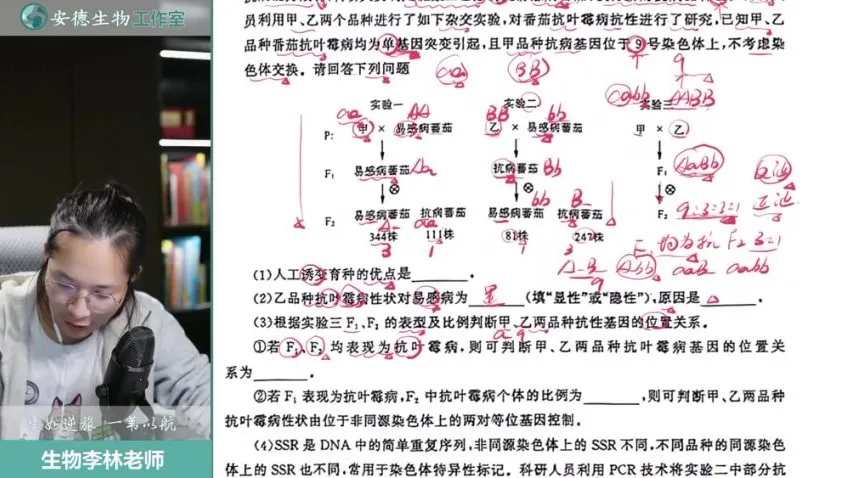 安德生物工作室
员利用甲、乙两个品种进行了如下杂交实验,对番茄抗叶霉病抗性进行了研究,已知甲、乙
品种番茄抗叶霉病均为单基因突变引起,且甲品种抗病基因位于9号染色体上,不考虑染
色体交换。请回答下列问题
aa BB 9
aabb AABB
实验一 实验二 实验三
aa AA BB bb
P: 甲 × 易感病番茄 乙 × 易感病番茄 甲 × 乙
F₁ 易感病番茄 Aa 抗病番茄 Bb F₁ AaBb
⊗ ⊗ ⊗
bb B_
F₂ 易感病番茄 抗病番茄 易感病番茄 抗病番茄 F₂ 9:3:3:1
A_ aa
344株 111株 81株 247株
3 1 1 3
F₁ 均为抗 F₂ 3=1
A_B_ A_bb aaB_ aabb
9
(1)人工诱变育种的优点是________。
(2)乙品种抗叶霉病性状对易感病为 显 (填“显性”或“隐性”),原因是________。
(3)根据实验三 F₁、F₂ 的表型及比例判断甲、乙两品种抗性基因的位置关系。
①若 F₁、F₂ 均表现为抗叶霉病,则可判断甲、乙两品种抗叶霉病基因的位置关
系为________。
②若 F₁ 表现为抗叶霉病,F₂ 中抗叶霉病个体的比例为________,则可判断甲、乙两品种
抗叶霉病性状由位于非同源染色体上的两对等位基因控制。
(4)SSR 是 DNA 中的简单重复序列,非同源染色体上的 SSR 不同,不同品种的同源染色
体上的 SSR 也不同,常用于染色体特异性标记。科研人员利用 PCR 技术将实验二中部分抗
逆旅 一苇以航
生物李林老师